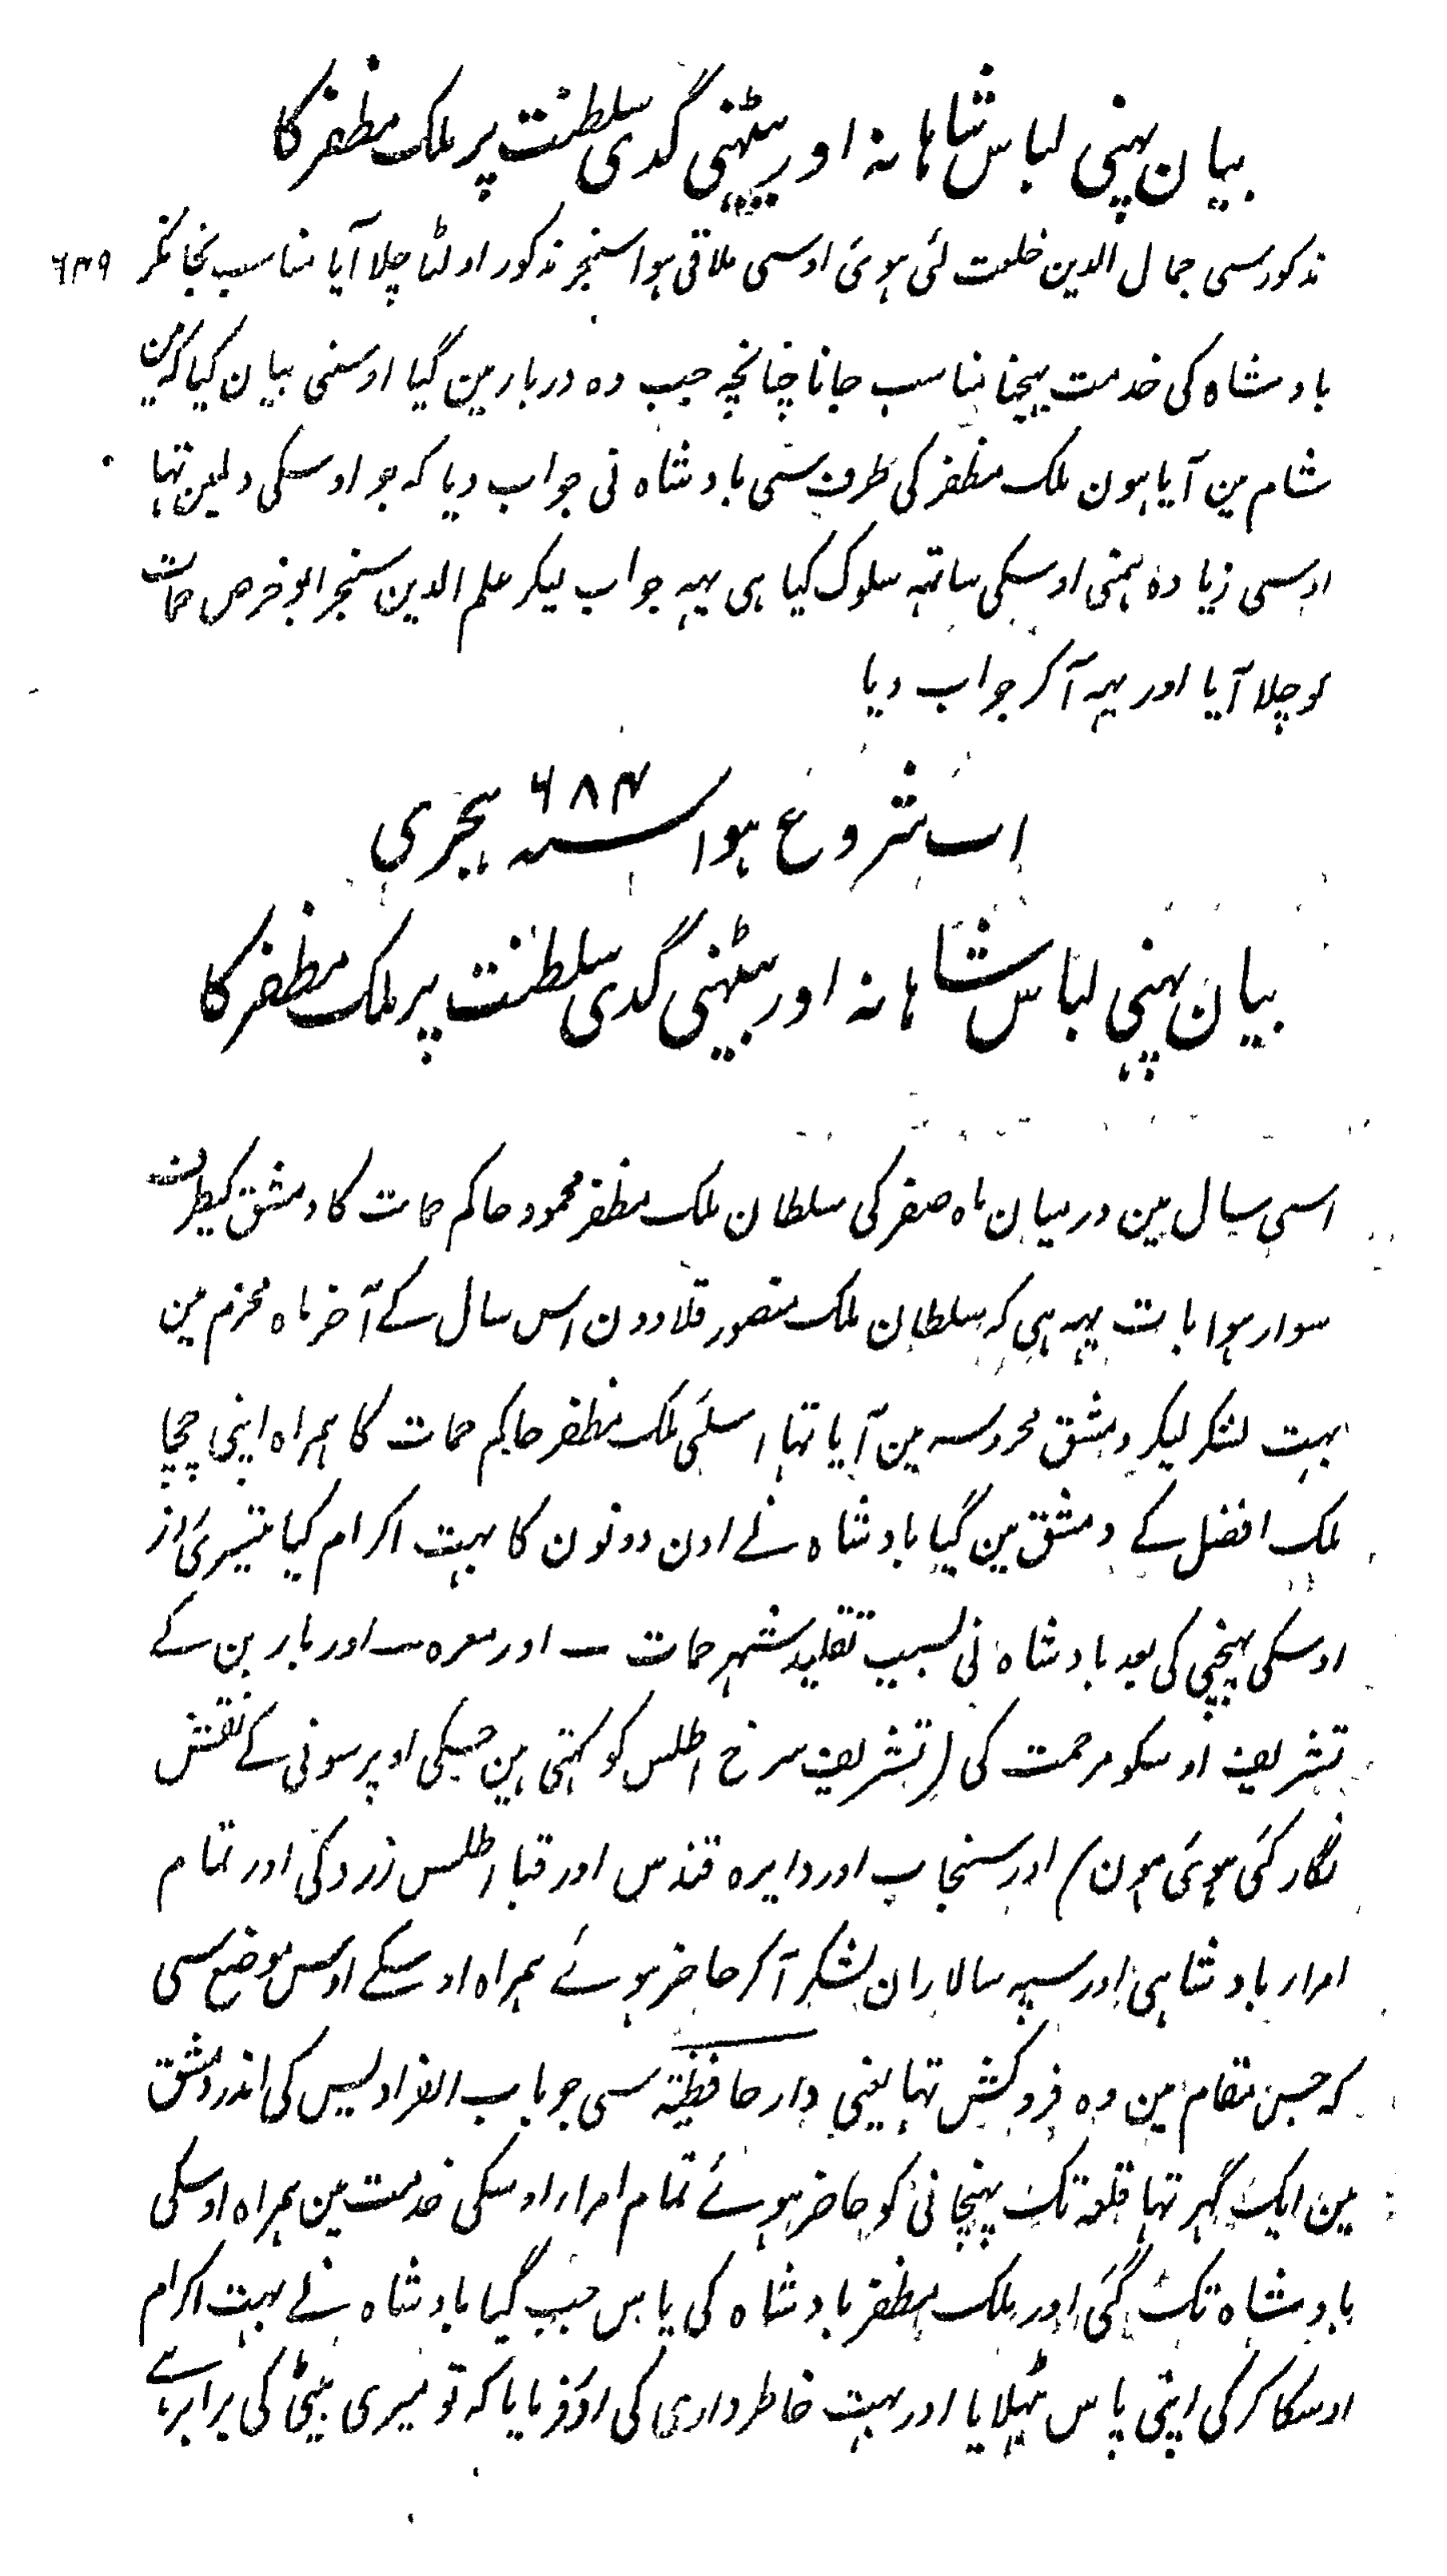 بیان پہننی لباس شاہانہ اور بیٹہنی گدی سلطنت پر ملک مظفر کا
مذکور سی جمال الدین خلعت لئی ہوئی اوسی ملاقی ہوا سنجر مذکور اولٹا چلا آیا مناسب نجانکر ۶۴۹
بادشاہ کی خدمت بہیجنا مناسب جانا چنانچہ جب وہ دربار مین گیا اوسنی بیان کیا کہ مین
شام مین آیا ہون ملک مظفر کی طرف سی بادشاہ نی جواب دیا کہ جو اوسکی دلمین تہا
اوسی زیادہ ہمنی اوسکی ساتہہ سلوک کیا ہی یہہ جواب لیکر علم الدین سنجر ابو خرص حمات
کو چلا آیا اور یہہ آکر جواب دیا
اب شروع ہوا سنہ ۶۸۴ ہجری
بیان پہننی لباس شاہانہ اور بیٹہنی گدی سلطنت پر ملک مظفر کا
اسی سال مین درمیان ماہ صفر کی سلطان ملک مظفر محمود حاکم حمات کا دمشق کیطرف
سوار ہوا بات یہہ ہی کہ سلطان ملک منصور قلاوون اس سال کے آخر ماہ محرم مین
بہت لشکر لیکر دمشق محروسہ مین آیا تہا اسلئی ملک مظفر حاکم حمات کا ہمراہ اپنی چچا
ملک افضل کے دمشق مین گیا بادشاہ نے اون دونون کا بہت اکرام کیا تیسری روز
اوسکی پہنچنی کی بعد بادشاہ نی بسبب تقلید شہر حمات ـ اور معرہ ـ اور بارین کے
تشریف اوسکو مرحمت کی (تشریف سرخ اطلس کو کہتی ہین جسکی اوپر سونی کے نقش
نگار کئی ہوئی ہون) اور سنجاب اور دایرہ قندس اور قبا اطلس زرد کی اور تمام
امرار بادشاہی اور سپہ سالاران لشکر آکر حاضر ہوئے ہمراہ اوسکے اوس موضع سی
کہ جس مقام مین وہ فروکش تہا یعنی دار حافظیہ سی جو باب الفرادیس کی اندر دمشق
مین ایک گہر تہا قلعہ تک پہنچانی کو حاضر ہوئے تمام امرار اوسکی خدمت مین ہمراہ اوسکی
بادشاہ تک گئی اور ملک مظفر بادشاہ کی پاس جب گیا بادشاہ نے بہت اکرام
اوسکا کرکی اپنی پاس بٹہلایا اور بہت خاطرداری کی اور فرمایا کہ تو میری بیٹی کی برابر ہے